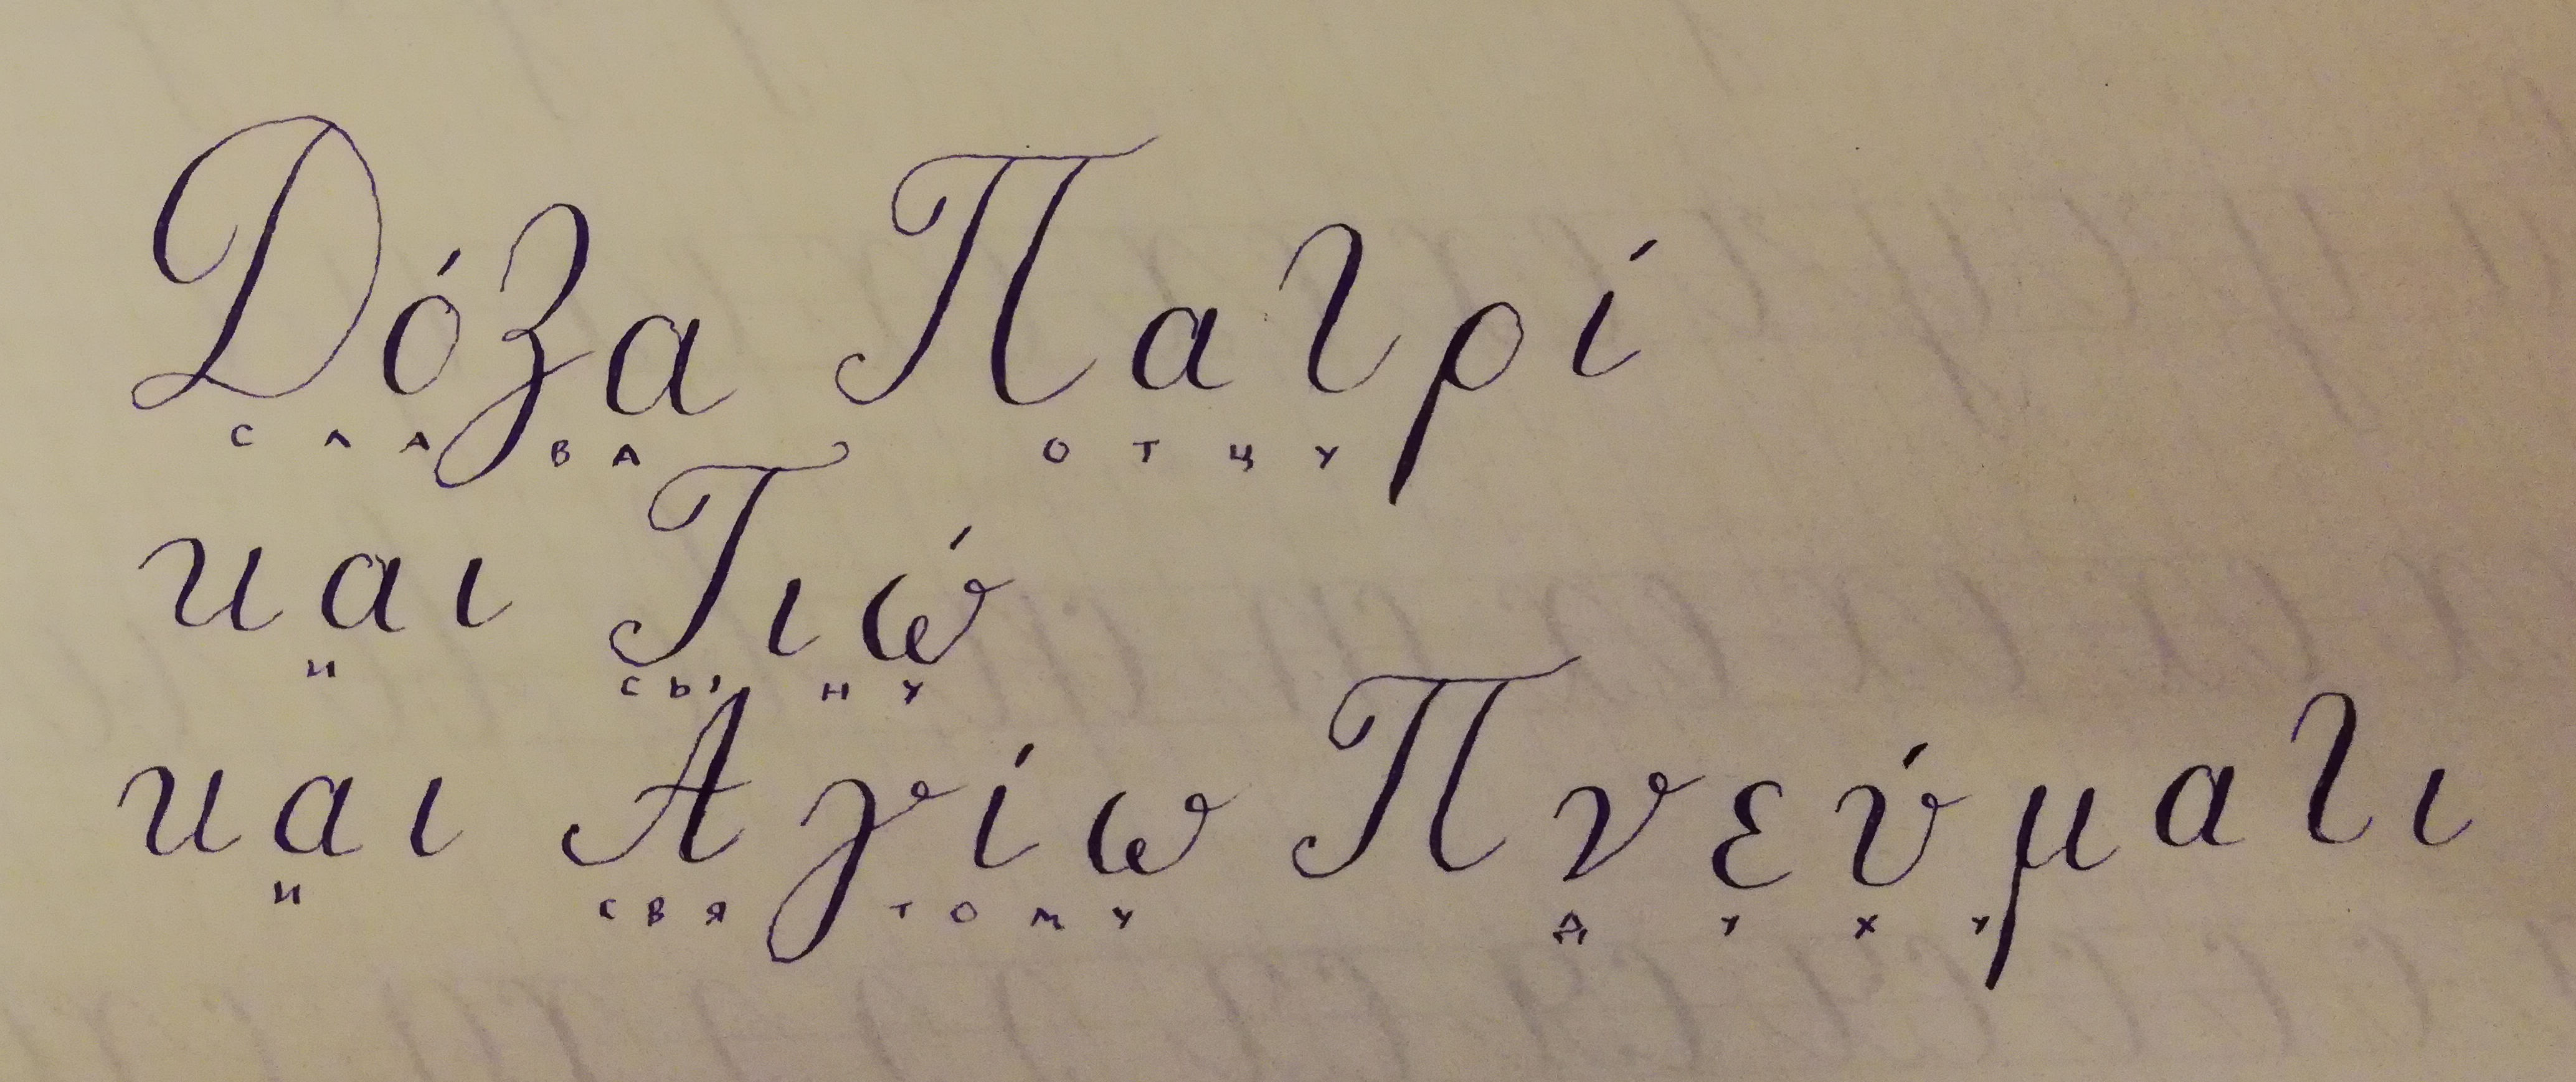 Dόξα Πατρί
СЛАВА ОТЦУ
και Τιώ
И СЫНУ
και Αγίω Πνεύματι
И СВЯТОМУ ДУХУ